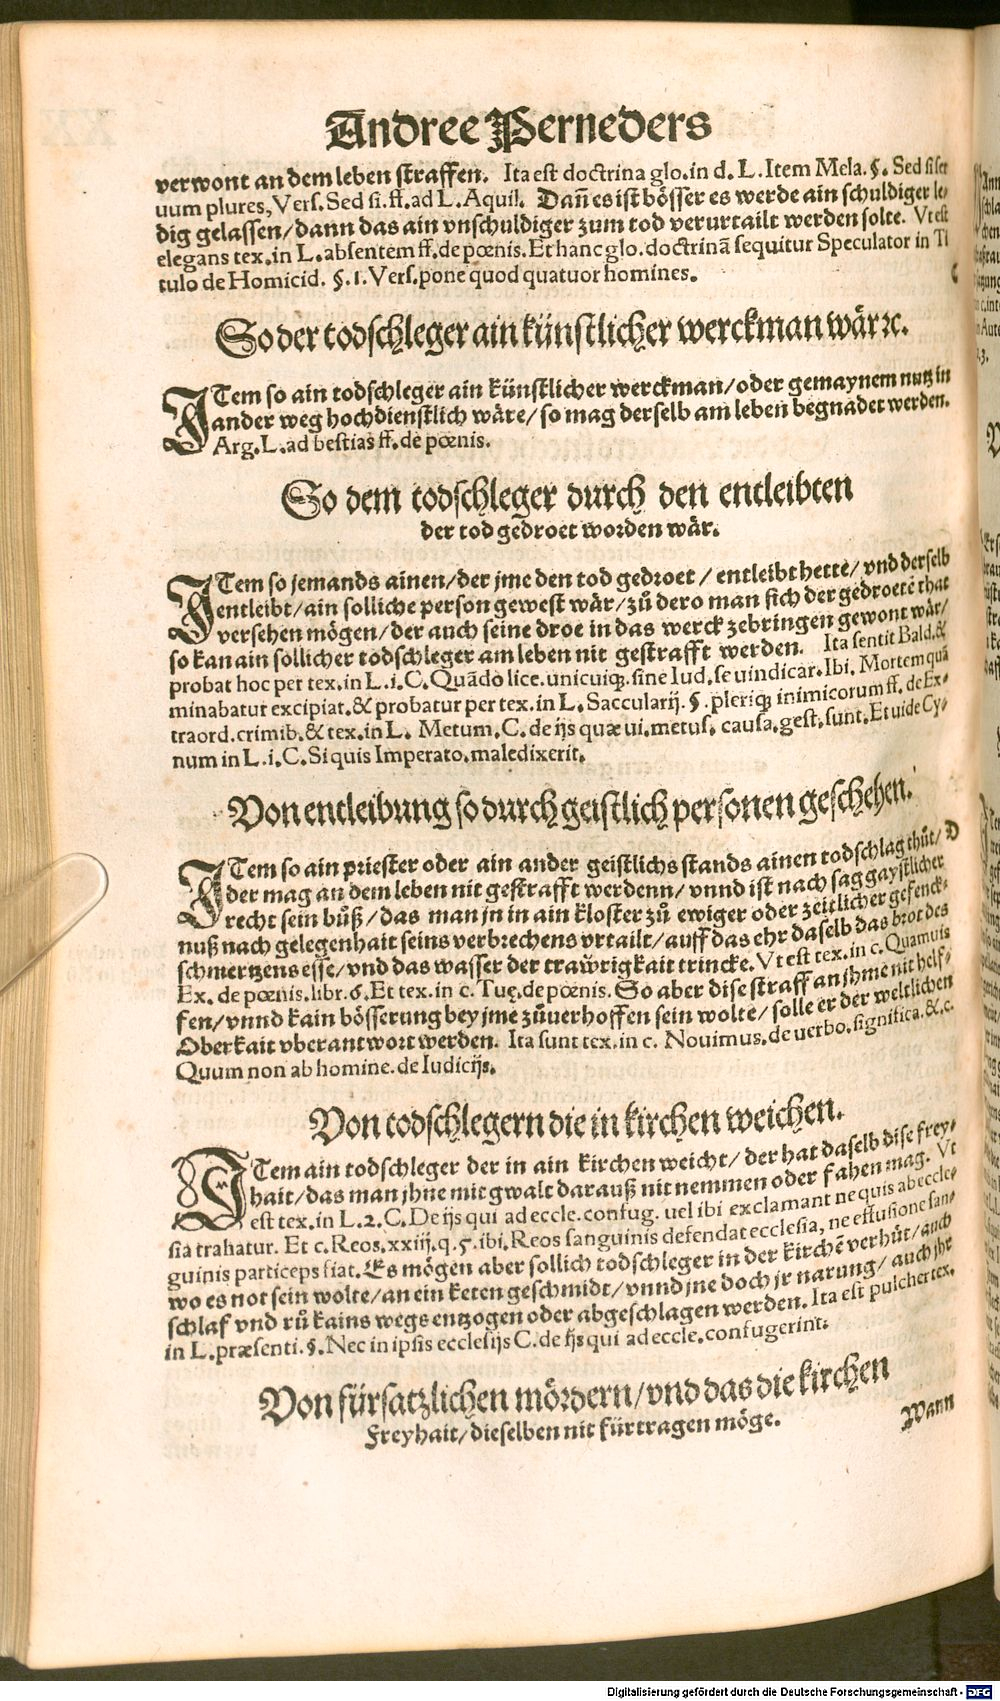 Andree Perneders
verwont an dem leben straffen. Ita est doctrina glo. in d. L. Item Mela. §. Sed si ser
uum plures, Vers. Sed si. ff. ad L. Aquil. Dañ es ist bösser es werde ain schuldiger le-
dig gelassen/ dann das ain vnschuldiger zum tod verurtailt werden solte. Vt est
elegans tex. in L. absentem ff. de pœnis. Et hanc glo. doctrinã sequitur Speculator in Ti
tulo de Homicid. §. 1. Vers. pone quod quatuor homines.
C
So der todschleger ain künstlicher werckman wär ꝛc.
ITem so ain todschleger ain künstlicher werckman/ oder gemaynem nutz in
ander weg hochdienstlich wäre/ so mag derselb am leben begnadet werden.
Arg. L. ad bestias ff. de pœnis.
So dem todschleger durch den entleibten
der tod gedroet worden wär.
ITem so jemands ainen/ der jme den tod gedroet/ entleibt hette/ vnd derselb
entleibt/ ain solliche person gewest wär/ zů dero man sich der gedroetẽ that
versehen mögen/ der auch seine droe in das werck zebringen gewont wär/
so kan ain sollicher todschleger am leben nit gestrafft werden. Ita sentit Bald. &
probat hoc per tex. in L. i. C. Quãdo lice. unicuiqꝫ sine Iud. se uindicar. Ibi. Mortem quã
minabatur excipiat. & probatur per tex. in L. Saccularij. §. pleriqꝫ inimicorum ff. de Ex-
traord. crimib. & tex. in L. Metum. C. de ijs quæ ui. metus. causa. gest. sunt. Et uide Cy-
num in L. i. C. Si quis Imperato. maledixerit.
Von entleibung so durch geistlich personen geschehen.
ITem so ain priester oder ain ander geistlichs stands ainen todschlag thůt/ D
der mag an dem leben nit gestrafft werdenn/ vnnd ist nach sag gaystlicher
recht sein bůß/ das man jn in ain kloster zů ewiger oder zeitlicher gefenck-
nuß nach gelegenhait seins verbrechens vrtailt/ auff das ehr daselb das brot des
schmertzens esse/ vnd das wasser der trawrigkait trincke. Vt est tex. in c. Quamuis
Ex. de pœnis. libr. 6. Et tex. in c. Tuę. de pœnis. So aber dise straff an jhme nit helf-
fen/ vnnd kain bösserung bey jme zůuerhoffen sein wolte/ solle er der weltlichen
Oberkait vberantwort werden. Ita sunt tex. in c. Nouimus. de uerbo. significa. &. c.
Quum non ab homine. de Iudicijs.
Von todschlegern die in kirchen weichen.
ITem ain todschleger der in ain kirchen weicht/ der hat daselb dise frey-
hait/ das man jhne mit gwalt darauß nit nemmen oder fahen mag. Vt
est tex. in L. 2. C. De ijs qui ad eccle. confug. uel ibi exclamant ne quis ab eccle-
sia trahatur. Et c. Reos. xxiij. q. 5. ibi. Reos sanguinis defendat ecclesia, ne effusione san-
guinis particeps fiat. Es mögen aber sollich todschleger in der kirchẽ verhůt/ auch
wo es not sein wolte/ an ein keten geschmidt/ vnnd jne doch jr narung/ auch jhr
schlaf vnd rů kains wegs entzogen oder abgeschlagen werden. Ita est pulcher tex.
in L. præsenti. §. Nec in ipsis ecclesijs C. de ijs qui ad eccle. confugerint.
Von fürsatzlichen mördern/ vnd das die kirchen
Freyhait/ dieselben nit fürtragen möge.
Wann
Digitalisierung gefördert durch die Deutsche Forschungsgemeinschaft - DFG